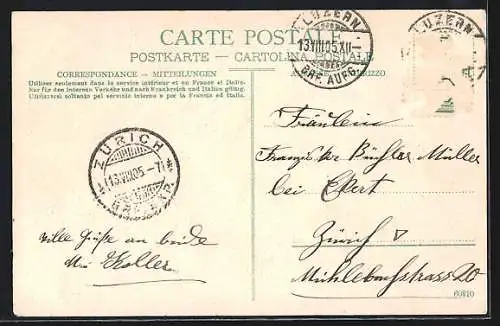 CARTE POSTALE
POSTKARTE - CARTOLINA POSTALE
CORRESPONDANCE - MITTEILUNGEN
Utiliser seulement dans le service intérieur et en France et Italie.
Nur für den internen Verkehr und nach Frankreich und Italien gültig.
Utilizzarsi soltanto pel servizio interno e per la Francia ed Italia.
LUZERN
13.VIII.05.XII-
BRF. AUFG.
LUZERN
ZÜRICH
13.VIII.05.-7
Fräulein
Müller
bei
Zürich V
20
viele Grüße an beide
Koller
60810